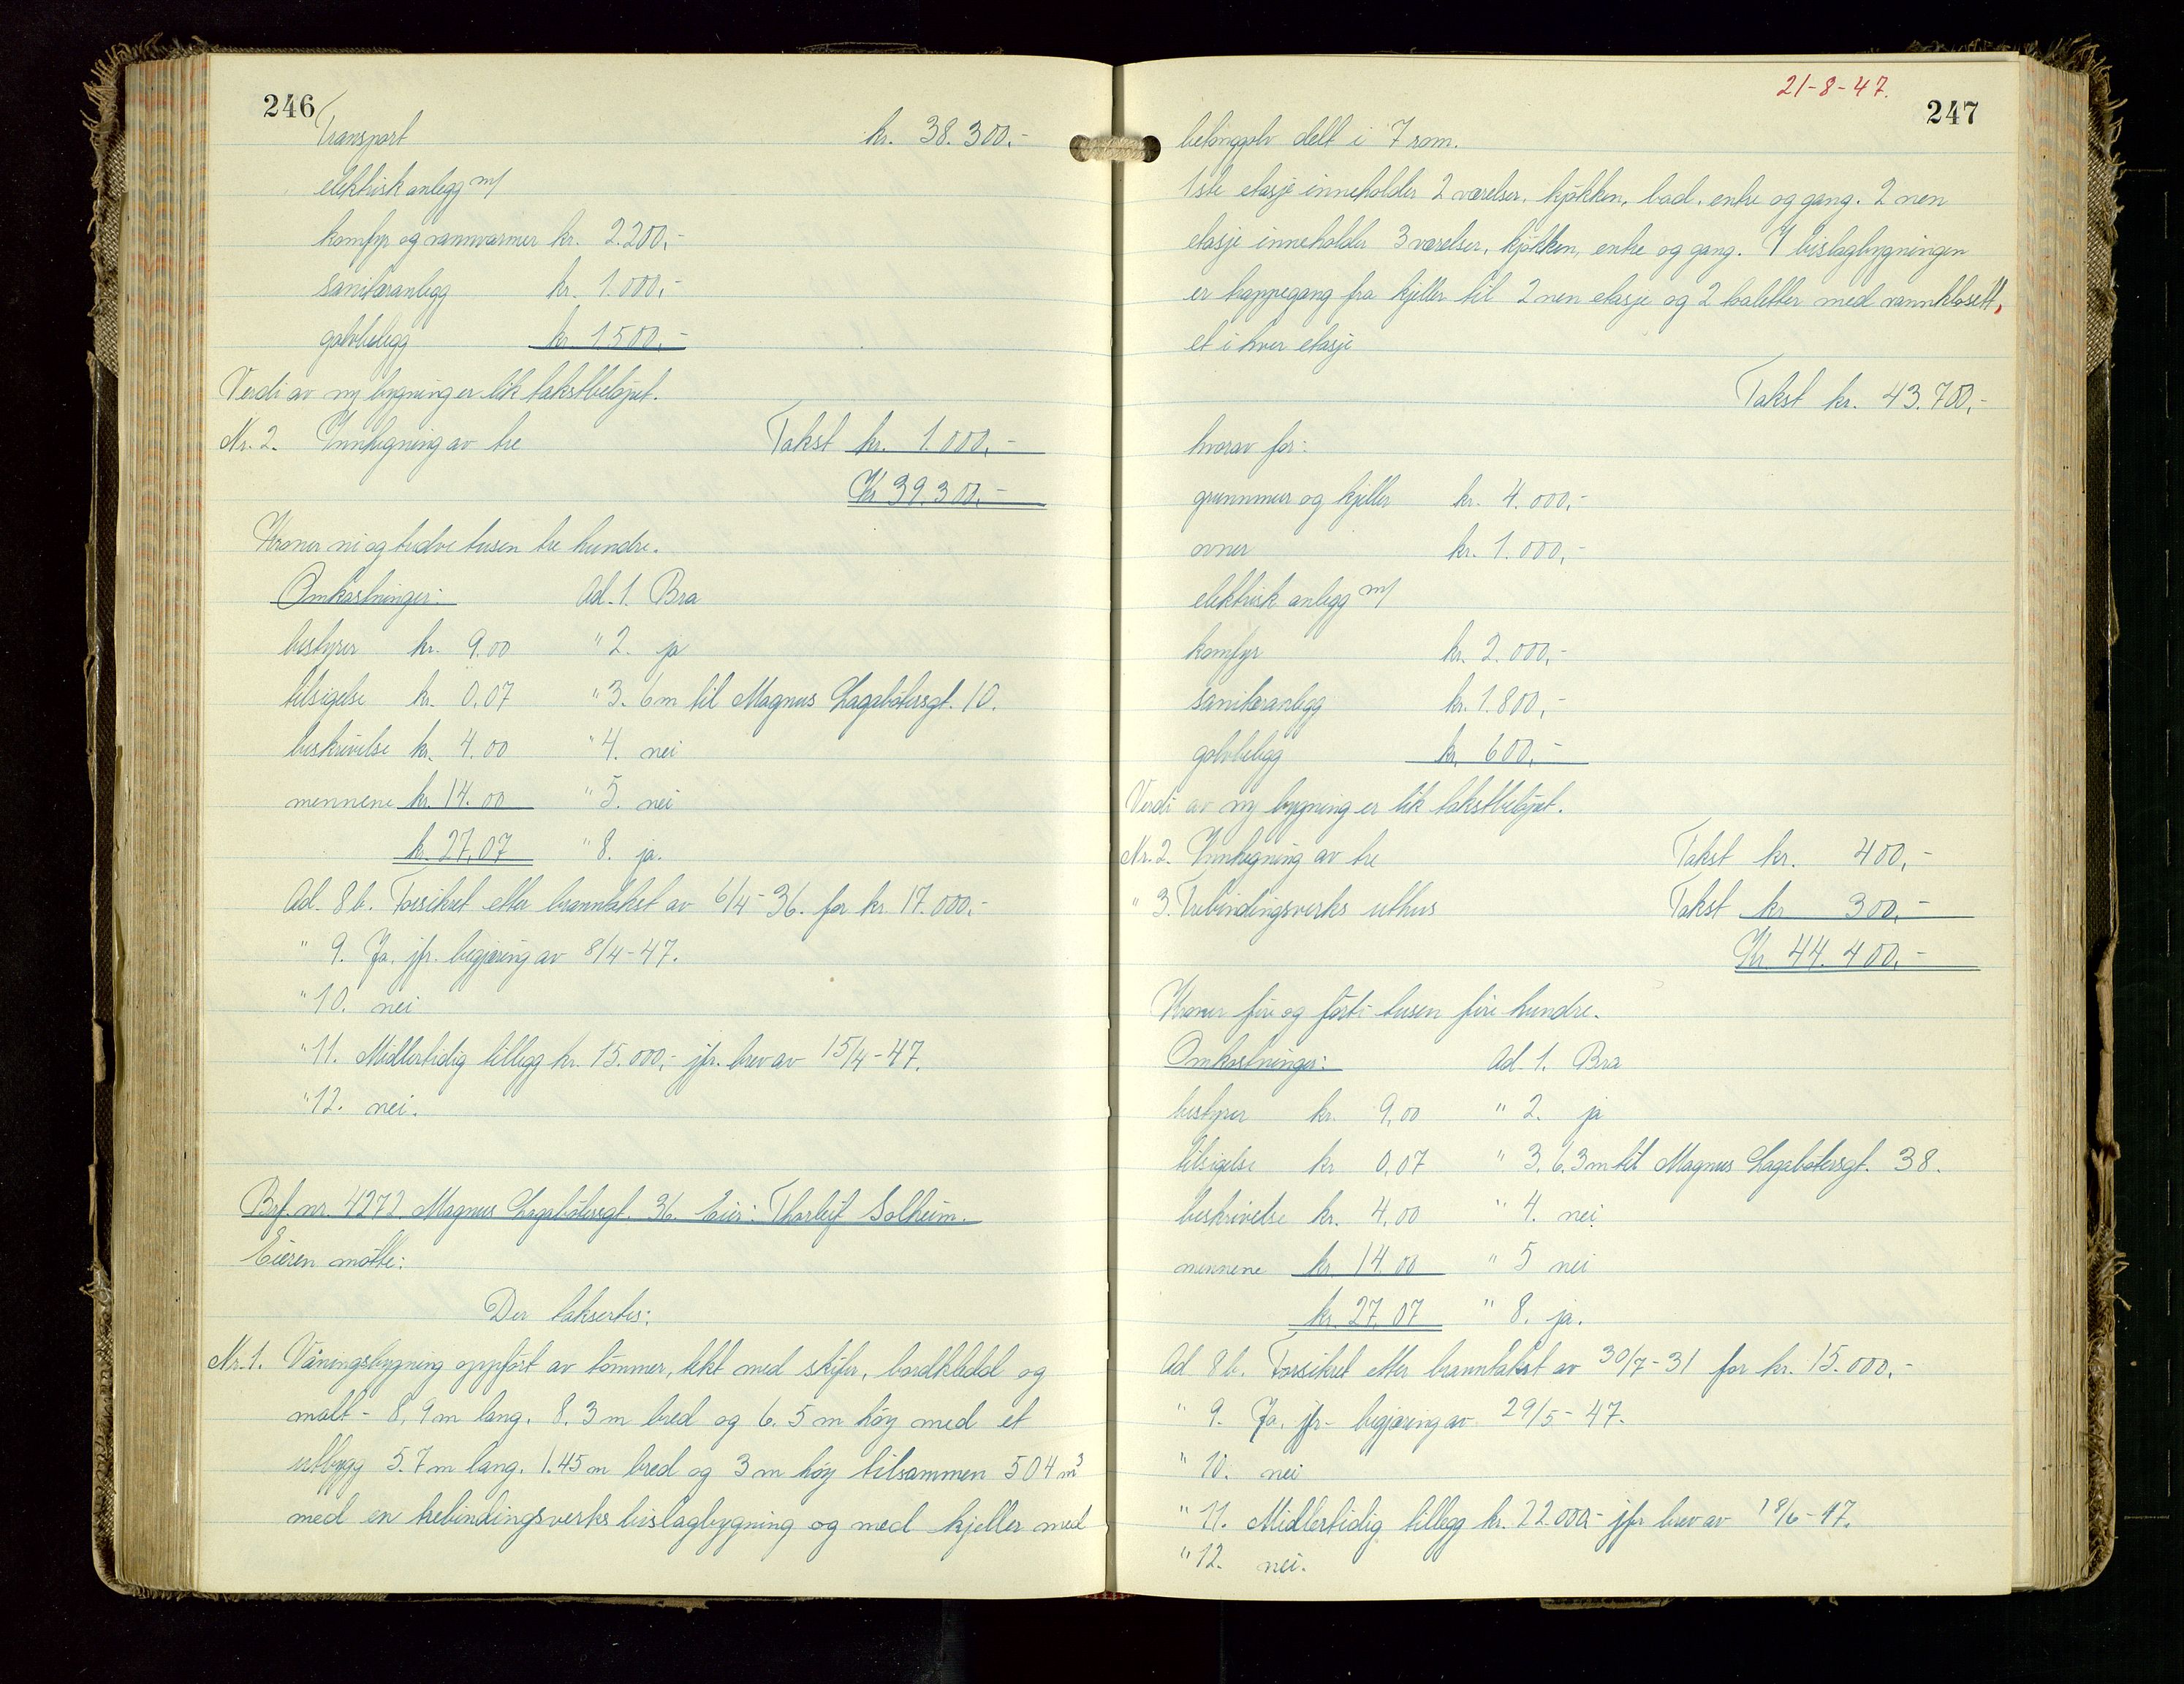 246
Transport kr. 38.300,-
elektrisk anlegg m/
komfyr og vannvarmer kr. 2.200,-
sanitæranlegg kr. 1.000,-
golvbelegg kr. 1500,-
Verdi av ny bygning er lik takstbeløpet.
Nr. 2. Innhegning av tre Takst kr. 1.000,-
Kr 39.300,-
Kroner ni og tredve tusen tre hundre.
Omkostninger: Ad. 1. Bra
bestyrer kr. 9.00 " 2. ja
tilsigelse kr. 0,07 " 3. 6m til Magnus Lagabøtersgt. 10.
beskrivelse kr. 4.00 " 4. nei
mennene kr. 14.00 " 5. nei
kr. 27,07 " 8. ja.
Ad. 8 b. Forsikret etter branntakst av 6/4-36. for kr. 17.000,-
" 9. Ja. jfr. begjæring av 8/4-47.
" 10. nei
" 11. Midlertidig tillegg kr. 15.000,- jfr. brev av 15/4-47.
" 12. nei.
Brf. nr. 4272 Magnus Lagabøtersgt. 36. Eier: Thorleif Solheim.
Eieren møtte:
Der taksertes:
Nr. 1. Våningsbygning oppført av tømmer, tekt med skifer, bordkledd og
malt - 8,9m lang, 8.3m bred og 6.5m høy med et
utbygg 5.7m lang, 1.45m bred og 3m høy tilsammen 504m3
med en trebindingsverks bislagbygning og med kjeller med
21-8-47.
247
betonggolv delt i 7 rom.
1ste etasje inneholder 2 værelser, kjøkken, bad, entre og gang. 2nen
etasje inneholder 3 værelser, kjøkken, entre og gang. I bislagbygningen
er trappegang fra kjeller til 2nen etasje og 2 toaletter med vannklosett,
et i hver etasje
Takst kr. 43.700,-
hvorav for:
grunnmur og kjeller kr. 4.000,-
ovner kr. 1.000,-
elektrisk anlegg m/
komfyr kr. 2.000,-
sanitæranlegg kr. 1.800,-
golvbelegg kr. 600,-
Verdi av ny bygning er lik takstbeløpet.
Nr. 2. Innhegning av tre Takst kr. 400,-
" 3. Trebindingsverks uthus Takst kr 300,-
Kr. 44.400,-
Kroner fire og førti tusen fire hundre.
Omkostninger: Ad. 1. Bra
bestyrer kr. 9,00 " 2. ja
tilsigelse kr 0,07 " 3. 6,3m til Magnus Lagabøtersgt. 38.
beskrivelse kr. 4,00 " 4. nei
mennene kr 14.00 " 5 nei
kr. 27,07 " 8. ja.
Ad 8 b. Forsikret etter branntakst av 30/7-31 for kr. 15.000,-
" 9. Ja, jfr- begjæring av 29/5-47.
" 10. nei
" 11. Midlertidig tillegg kr. 22.000,- jfr brev av 18/6-47.
" 12. nei.